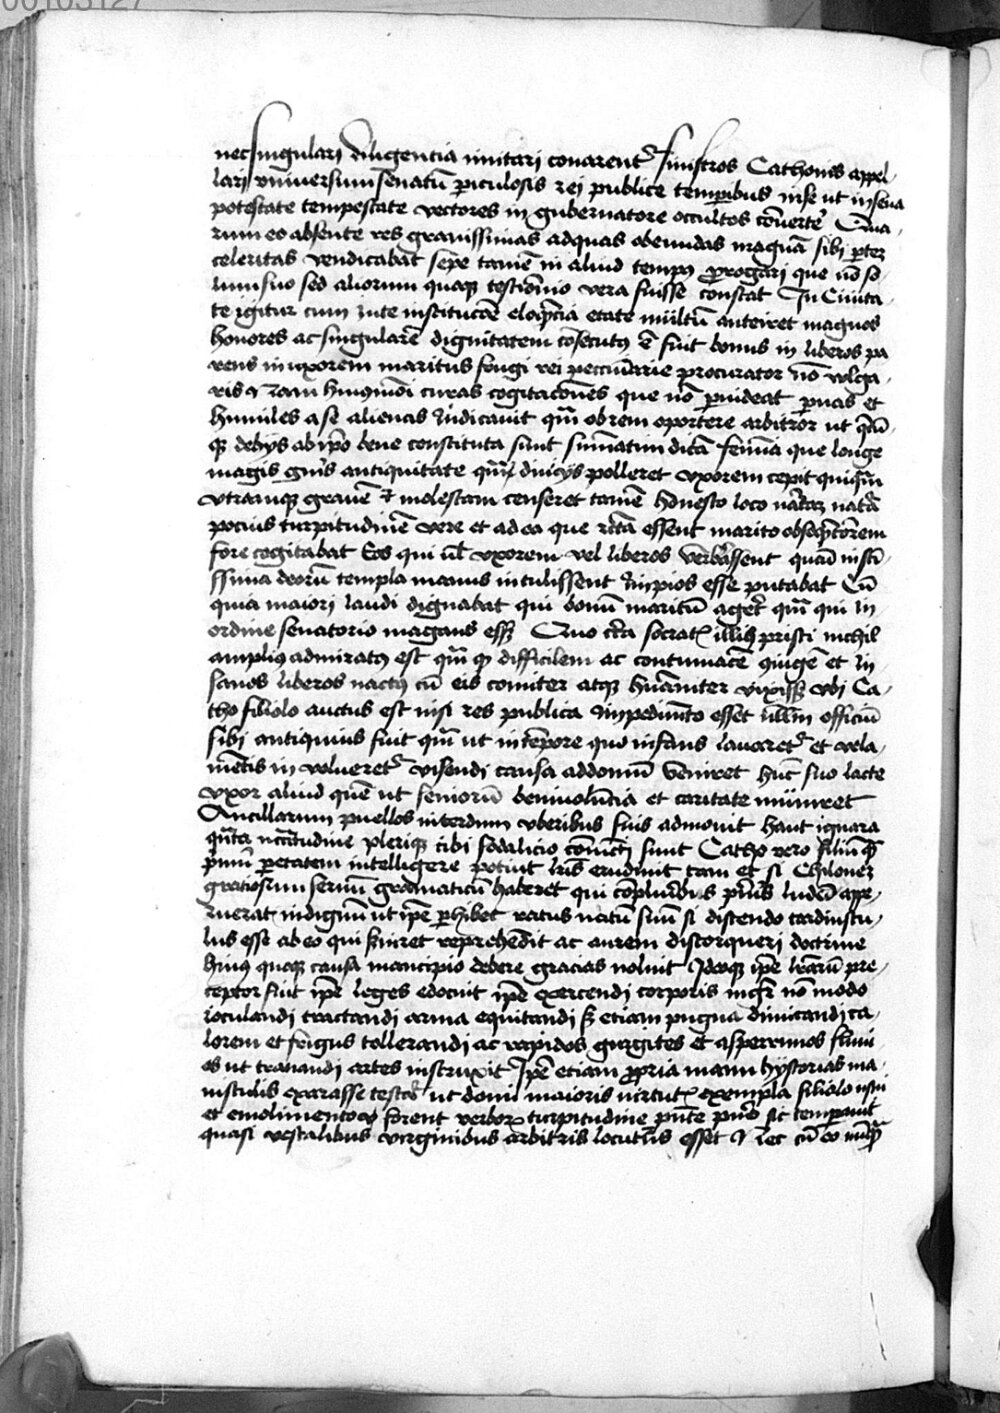 00103127
nec singulari diligentia imitari conarent͛ sinistros Cathones appel-
lari vniuersum senatū ꝑiculosis rei publice temꝑibus in se ut in seua
potestate tempestate vectores in gubernatore occultos cōuerte͛
rum eo absente res grauissimas ad quas obeundas magnā sibi
celeritas vendicabat sepe tamē in aliud tempꝯ ꝓrogari que nō so-
lum suo sed aliorum quoqꝫ testiōnio vera fuisse constat In Ciuita-
te igitur cum iute institucōe eloqͣncia etate mūltū anteiret magnos
honores ac singularē dignitatem cōsecutꝯ ē fuit bonus in liberos pa
rens in uxorem maritus frugi rei peccuniarie procurator nō vulga-
ris ⁊ nam huiꝯmōdi curas cogitacōnes que nō ꝓuideat ꝑuas et
humiles a se alienas iudicauit qm̄ ob rem oportere arbitror ut
qꝫ de hijs ab ip̄o bene constituta sunt sūmatim dicā feminā que longe
magis gn̄is antiquitate qm̄ diuicijs polleret vxorem cepit
vtramqꝫ grauē ⁊ molestam censeret tamē honesto loco natā
pocius turpitudinē vere et ad ea que recta essent marito
fore cogitabat Eos qui ūl vxorem vel liberos verbāssent quam insti-
ssima deorū templa manus intulissent impios esse putabat Cū
quia maiori laudi dignabat qui bonū maritū ageret qm̄ qui in
ordine senatorio magnus essꝫ Quo cͥca socratꝭ illiꝯ pristi nichil
ampliꝯ admiratꝯ est qm̄ qꝫ difficilem ac contumacē ꝯiugē et in
sanos liberos nactꝯ cū eis comiter atqꝫ humāniter vixissꝫ vbi Ca-
tho filiolo auctus est nisi res publica impedimēto esset ullū officiū
sibi antiquius fuit qm̄ ut in tēpore quo infans lauaret͛ et vela-
mētis in volueret͛ visendi causa ad domū veniret hūc suo lacte
vxor aliud quē ut seniorū beniuolēcia et caritate mūniret
Ancillarum puellos interdum vberibus suis admouit haut ignara
necītudine pleriqꝫ tibi sodalicio cōiuncti sunt Catho vero filiū
pͥmū ꝑ etatem intelligere potuit lrīs erudiuit tam et si Chilonem
gratiosum seruū gramaticū haberet qui cōpluribꝯ pueris ludū ape-
ruerat indignū ut ip̄e ꝑhibet ratus natū suū si discendo tardiuscu-
lus esse ab eo qui seruiret reprehēdit ac aurem discorqueri doctrine
huiꝯ quoqꝫ causa mancipio debere gracias noluit Ideoqꝫ ip̄e lr̄arū pre-
ceptor fuit ip̄e leges edocuit ip̄e exercendi corporis mḡr nō modo
ioculandi tractandi arma equitandi sꝫ etiam pugna dimicandi ca-
lorem et frigus tollerandi ac rapidos gurgites et asperrimos fluui-
os ut tranandi artes instruxit Ip̄e etiam ꝓpria manu hystorias ma-
iusculis exarasse testat͛ ut domi maioris virtutꝭ exempla filiolo usui
et emolimento forent verborꝫ turpitudine pn̄te puero sic temꝑauit
quasi vestalibus virginibus arbitris locutus esset ⁊ lec cū eo nūqͣ